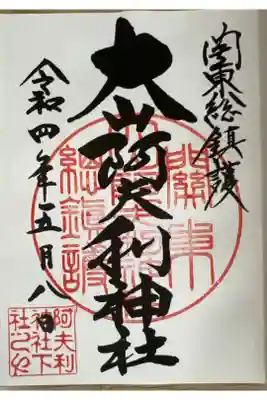 関東総鎮護
大山阿夫利神社
令和四年五月八日
關東
總鎮護
阿夫利
神社下
社之印